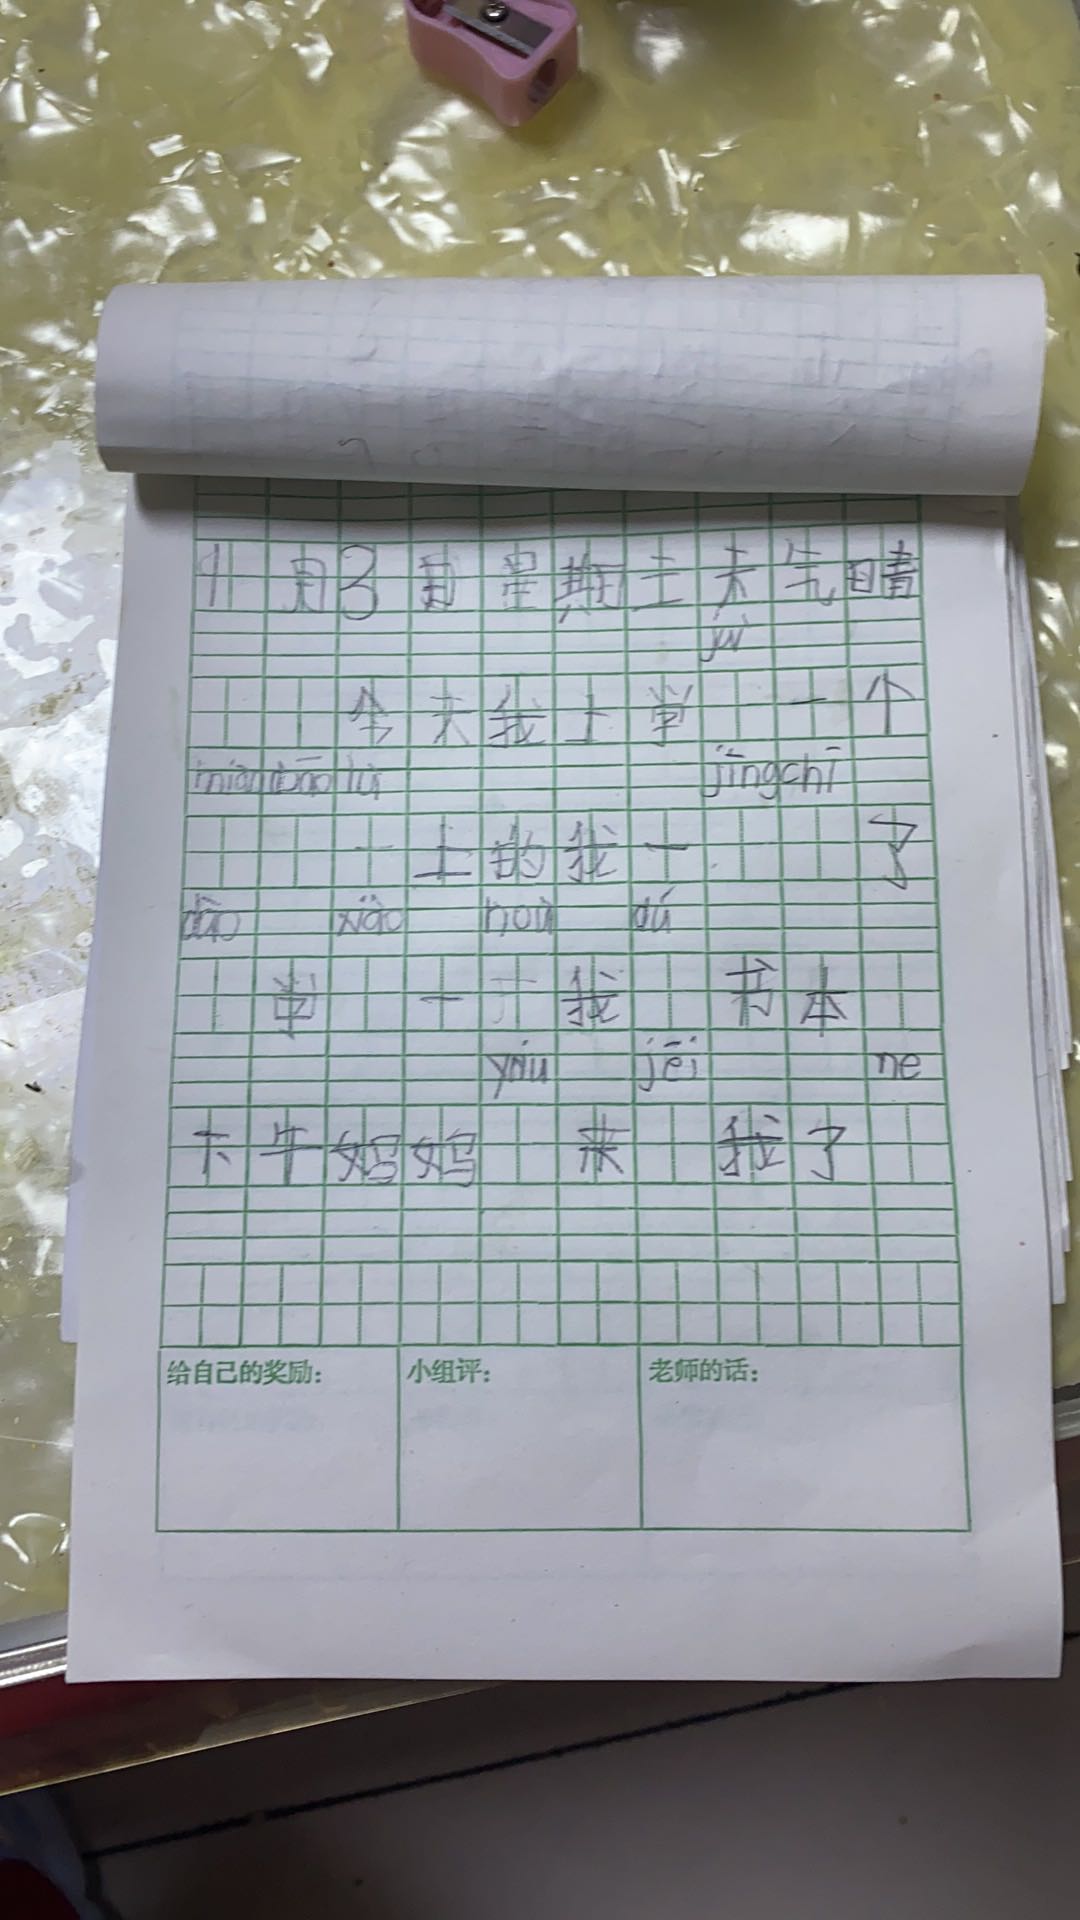 11月3日星期三天气晴
jù
今天我上学一个
miàn bāo lù jīng chī
一上的我一了
dào xiào hoù dú
学一我书本
yòu jēi ne
下午妈妈来我了
给自己的奖励: 小组评: 老师的话: